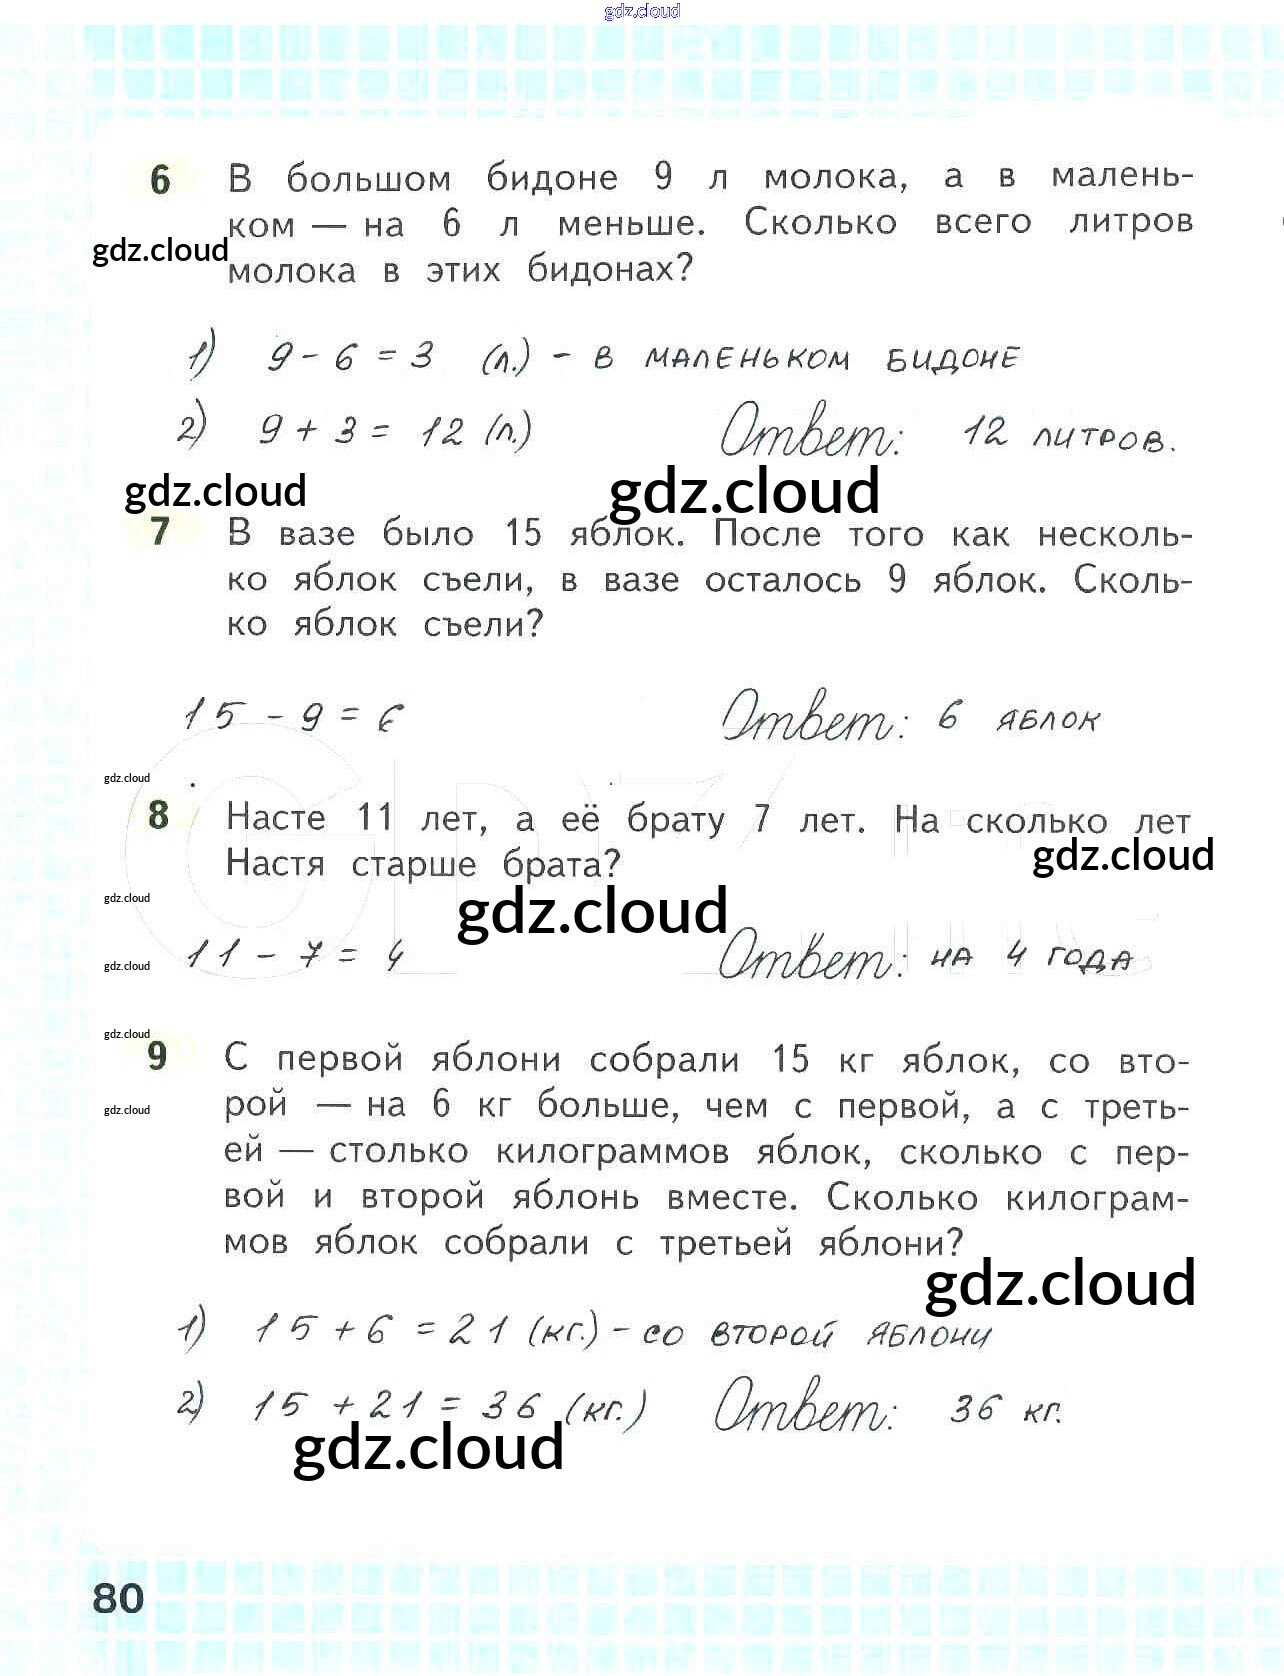 gdz.cloud
6 В большом бидоне 9 л молока, а в малень-
ком — на 6 л меньше. Сколько всего литров
gdz.cloud
молока в этих бидонах?
1) 9 - 6 = 3 (л.) - в маленьком бидоне
2) 9 + 3 = 12 (л.) Ответ: 12 литров.
gdz.cloud gdz.cloud
7 В вазе было 15 яблок. После того как несколь-
ко яблок съели, в вазе осталось 9 яблок. Сколь-
ко яблок съели?
15 - 9 = 6 Ответ: 6 яблок
gdz.cloud
8 Насте 11 лет, а её брату 7 лет. На сколько лет
Настя старше брата?
gdz.cloud
gdz.cloud
gdz.cloud
11 - 7 = 4 Ответ: на 4 года
gdz.cloud
gdz.cloud
9 С первой яблони собрали 15 кг яблок, со вто-
рой — на 6 кг больше, чем с первой, а с треть-
gdz.cloud
ей — столько килограммов яблок, сколько с пер-
вой и второй яблонь вместе. Сколько килограм-
мов яблок собрали с третьей яблони?
gdz.cloud
1) 15 + 6 = 21 (кг.) - со второй яблони
2) 15 + 21 = 36 (кг.) Ответ: 36 кг.
gdz.cloud
80